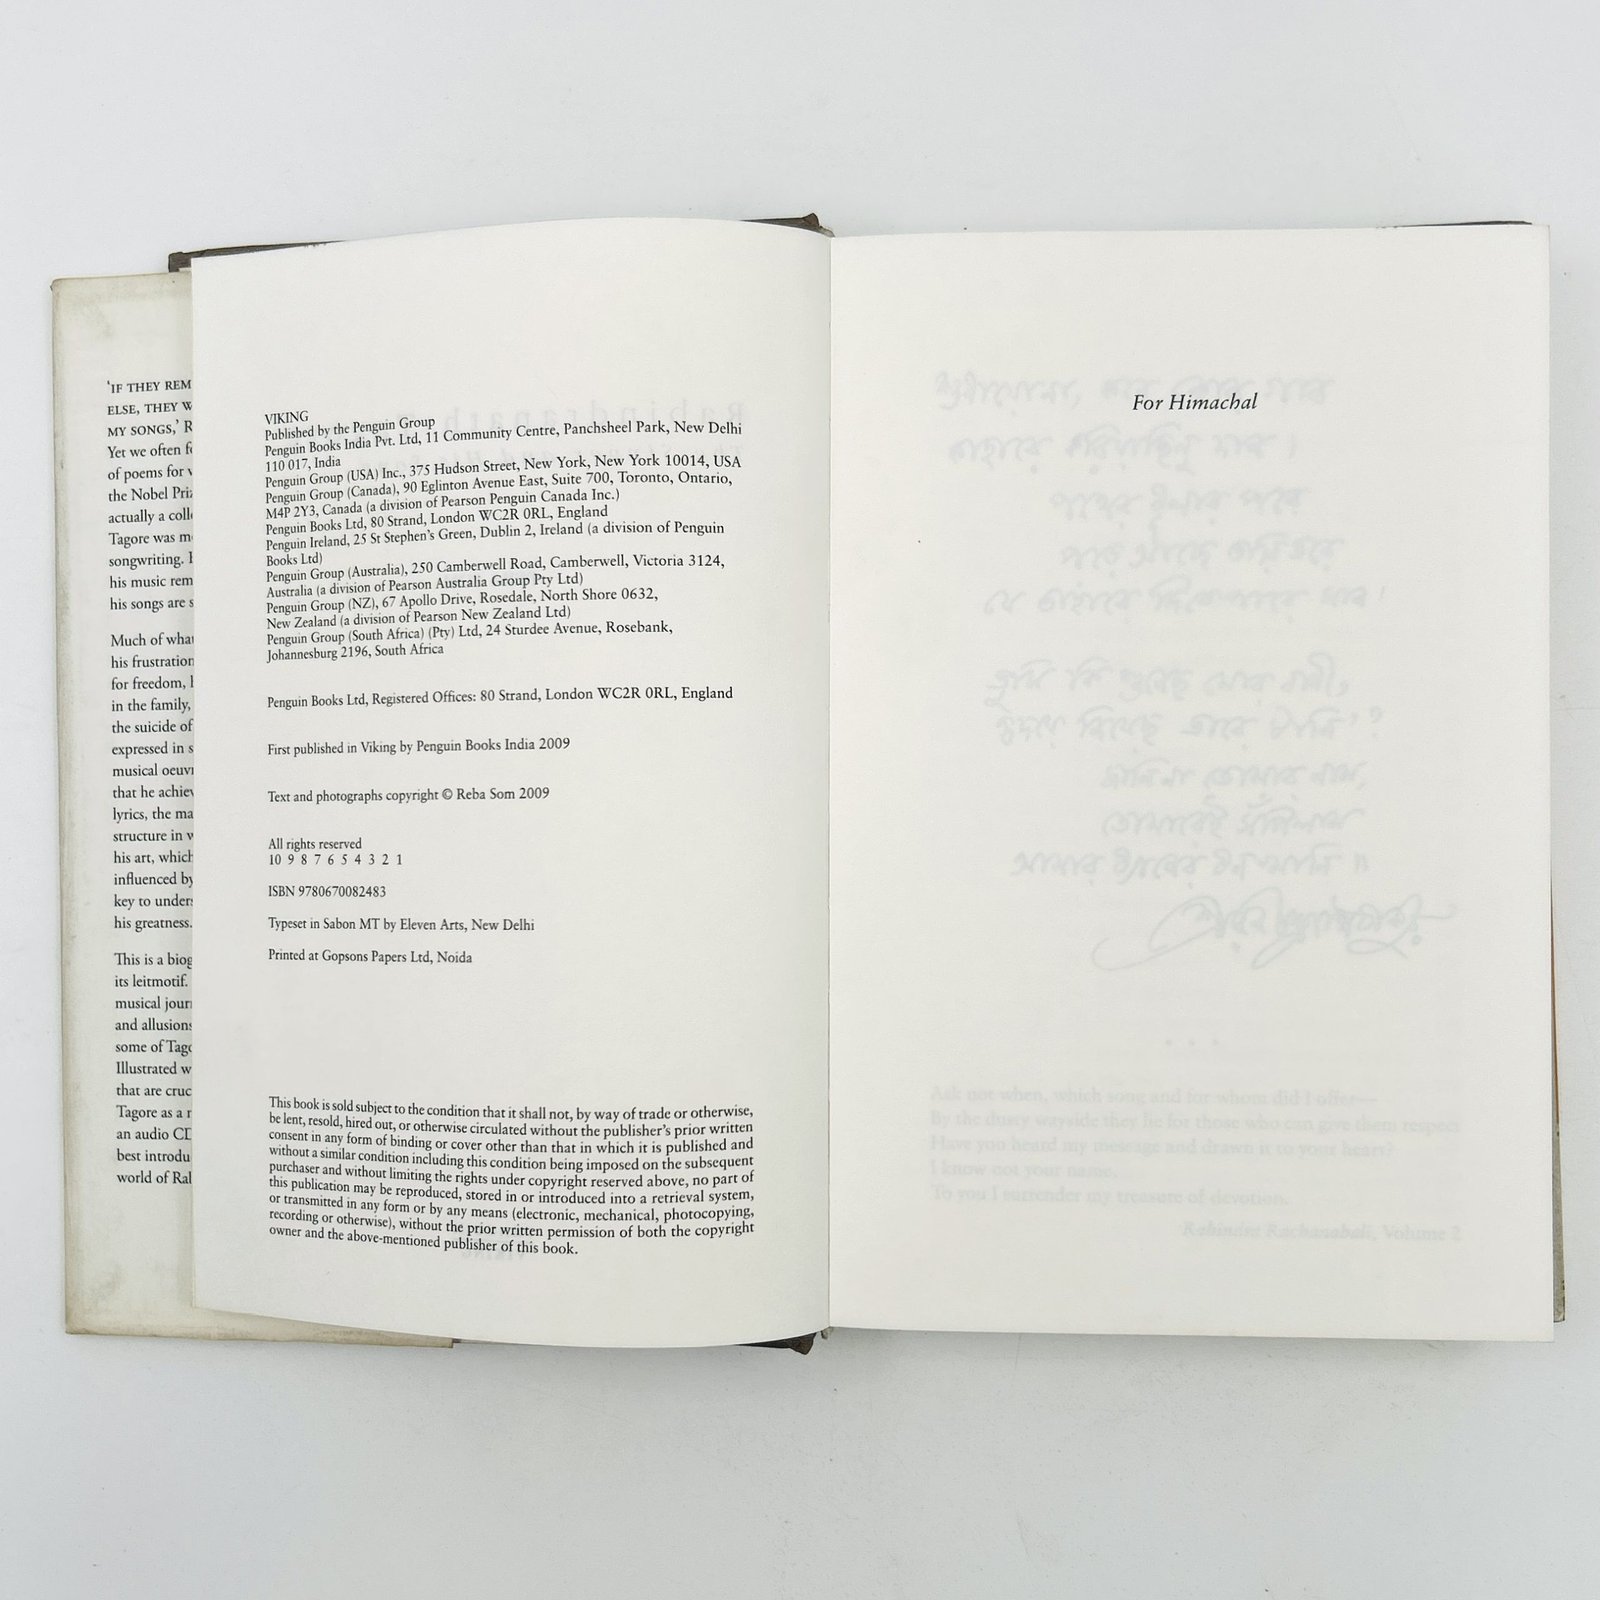 'IF THEY REM
ELSE, THEY W
MY SONGS,' R
Yet we often f
of poems for v
the Nobel Pri
actually a coll
Tagore was m
songwriting. 
his music rem
his songs are s
Much of what
his frustration
for freedom, 
in the family,
the suicide of
expressed in s
musical oeuv
that he achiev
lyrics, the ma
structure in w
his art, which
influenced by
key to unders
his greatness.
This is a biog
its leitmotif.
musical jour
and allusions
some of Tago
Illustrated w
that are cruc
Tagore as a r
an audio CD
best introdu
world of Ral
VIKING
Published by the Penguin Group
Penguin Books India Pvt. Ltd, 11 Community Centre, Panchsheel Park, New Delhi
110 017, India
Penguin Group (USA) Inc., 375 Hudson Street, New York, New York 10014, USA
Penguin Group (Canada), 90 Eglinton Avenue East, Suite 700, Toronto, Ontario,
M4P 2Y3, Canada (a division of Pearson Penguin Canada Inc.)
Penguin Books Ltd, 80 Strand, London WC2R 0RL, England
Penguin Ireland, 25 St Stephen's Green, Dublin 2, Ireland (a division of Penguin
Books Ltd)
Penguin Group (Australia), 250 Camberwell Road, Camberwell, Victoria 3124,
Australia (a division of Pearson Australia Group Pty Ltd)
Penguin Group (NZ), 67 Apollo Drive, Rosedale, North Shore 0632,
New Zealand (a division of Pearson New Zealand Ltd)
Penguin Group (South Africa) (Pty) Ltd, 24 Sturdee Avenue, Rosebank,
Johannesburg 2196, South Africa
Penguin Books Ltd, Registered Offices: 80 Strand, London WC2R 0RL, England
First published in Viking by Penguin Books India 2009
Text and photographs copyright © Reba Som 2009
All rights reserved
10 9 8 7 6 5 4 3 2 1
ISBN 9780670082483
Typeset in Sabon MT by Eleven Arts, New Delhi
Printed at Gopsons Papers Ltd, Noida
This book is sold subject to the condition that it shall not, by way of trade or otherwise,
be lent, resold, hired out, or otherwise circulated without the publisher's prior written
consent in any form of binding or cover other than that in which it is published and
without a similar condition including this condition being imposed on the subsequent
purchaser and without limiting the rights under copyright reserved above, no part of
this publication may be reproduced, stored in or introduced into a retrieval system,
or transmitted in any form or by any means (electronic, mechanical, photocopying,
recording or otherwise), without the prior written permission of both the copyright
owner and the above-mentioned publisher of this book.
For Himachal
Ask not when, which song and for whom did I offer—
By the dusty wayside they lie for those who can give them respect
Have you heard my message and drawn it to your heart?
I know not your name,
To you I surrender my treasure of devotion.
Rabindra Rachanabali, Volume 2